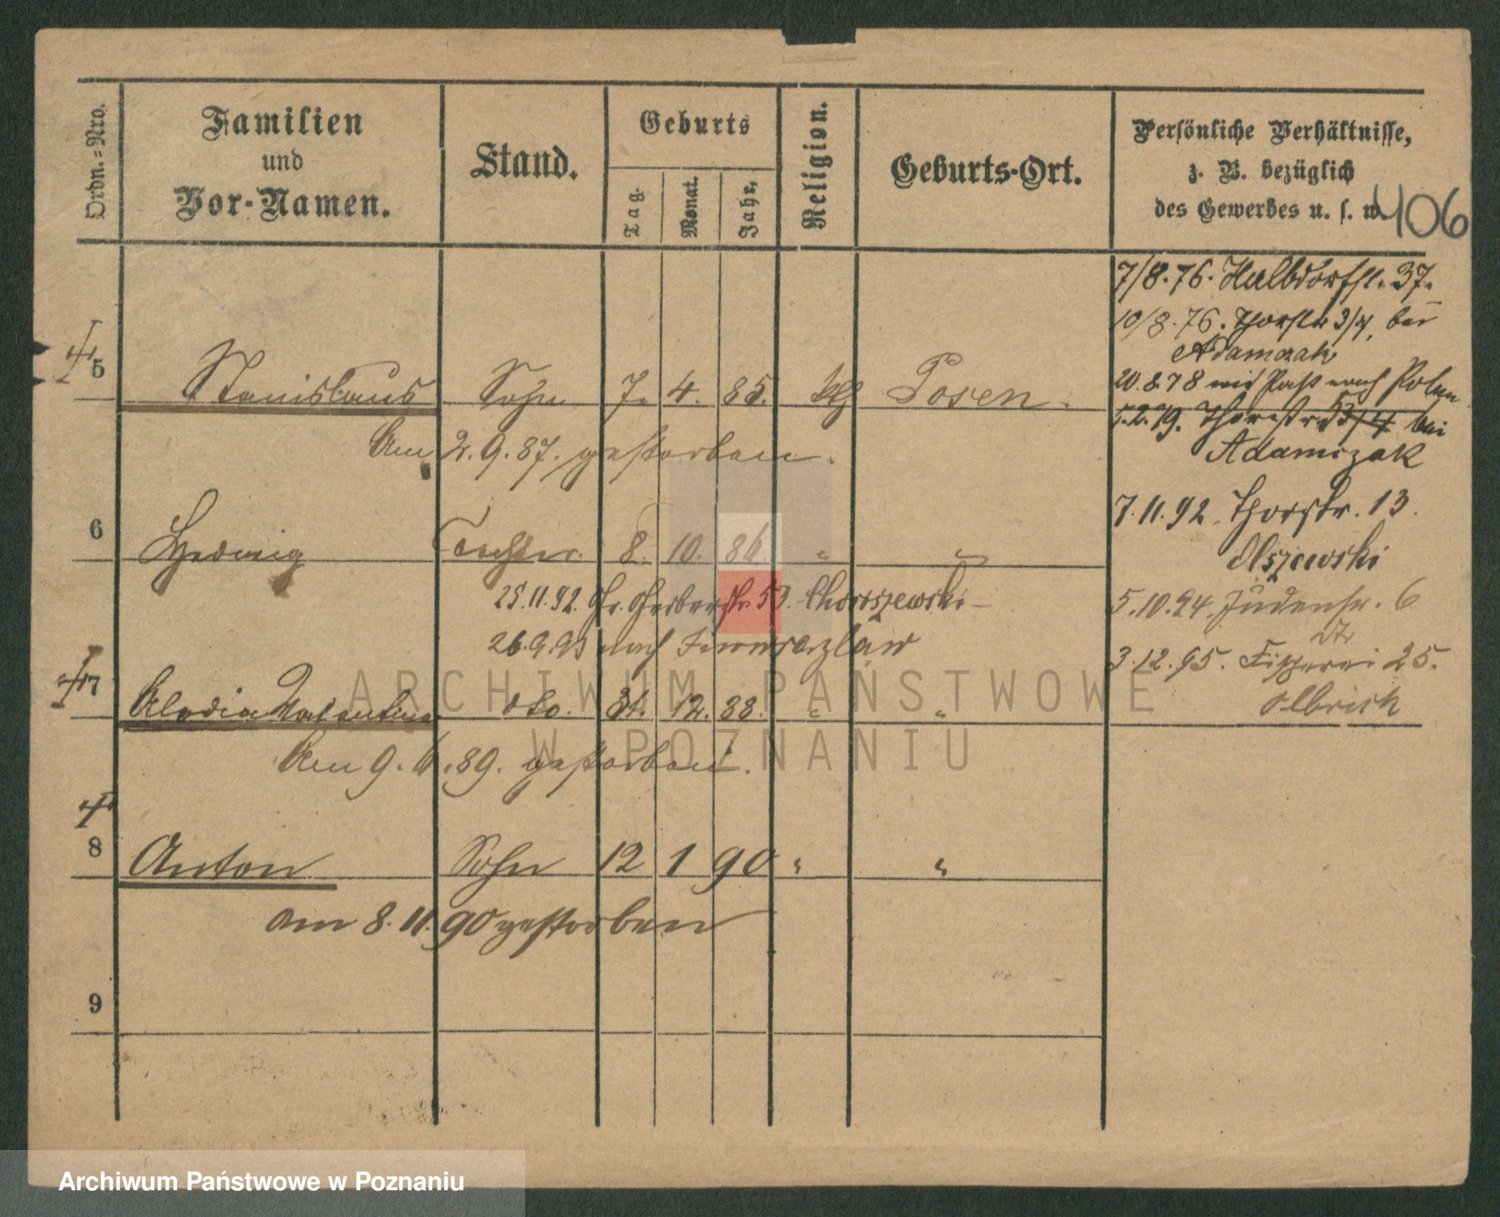 Ordn.=Nro.
Familien
und
Vor-Namen.
Stand.
Geburts
Tag.
Monat.
Jahr.
Religion.
Geburts-Ort.
Persönliche Verhältnisse,
z. B. bezüglich
des Gewerbes u. s. w.
406
7/8.76. Halbdorfstr. 37.
10/8.76. Thorstr 3/4, bei
Adamczak
20.8.78 mit Paß nach Polen
5.2.79. Thorstr 3/4 bei
Adamczak
7.11.92. Thorstr. 13.
Olszewski
5.10.94. Judenstr. 6
3.12.95. Fischerei 25.
Olbrich
5 Stanislaus Sohn 7. 4. 85. kth Posen.
Am 2.9.87. gestorben.
6 Hedwig Tochter. 8. 10. 86. " "
25.11.92. Gr. Gerberstr. 53.
26.9.93 nach Inowrazlaw
7 Valentina dto. 31. 12. 88. " "
Am 9.6.89. gestorben.
8 Anton Sohn 12 1 90 " "
am 8.11.90 gestorben
9
ARCHIWUM PAŃSTWOWE
W POZNANIU
Archiwum Państwowe w Poznaniu